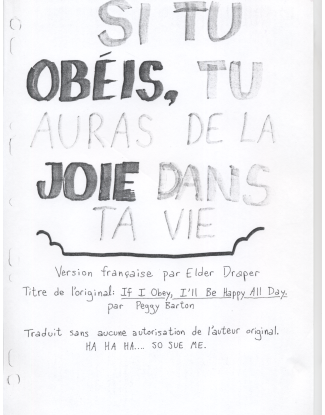 SI TU
OBÉIS, TU
AURAS DE LA
JOIE DANS
TA VIE
Version française par Elder Draper
Titre de l'original: If I Obey, I'll Be Happy All Day.
par Peggy Barton
Traduit sans aucune autorisation de l'auteur original.
HA HA HA.... SO SUE ME.